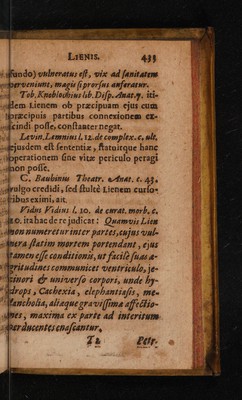 LIENIS. 433
fundo) vulneratus est, vix ad sanitatem
perveniunt, magis si prorsus auferatur.
Tob. Knoblochius lib. Disp. Anat. 7. iti-
dem Lienem ob præcipuam ejus cum
præcipuis partibus connexionem ex-
cindi posse, constanter negat.
Levin. Lemnius l. 12. de complex. c. ult.
ejusdem est sententiæ, statuitque hanc
operationem sine vitæ periculo peragi
non posse.
C. Bauhinus Theatr. Anat. c. 43.
vulgo credidi, sed stultè Lienem curso-
ribus eximi, ait
Vidus Vidius l. 10. de curat. morb. c.
10. ita hac de re judicat: Quamvis Lien
non numeretur inter partes, cujus vul-
nera statim mortem portendant, ejus
tamen esse conditionis, ut facilè suas æ-
gritudines communicet ventriculo, je-
cinori & universo corpori, unde hy-
drops, Cachexia, elephantiasis, me-
lancholia, aliæque gravissimæ affectio-
nes, maxima ex parte ad interitum
perducentes enascantur.
T 2 Petr.